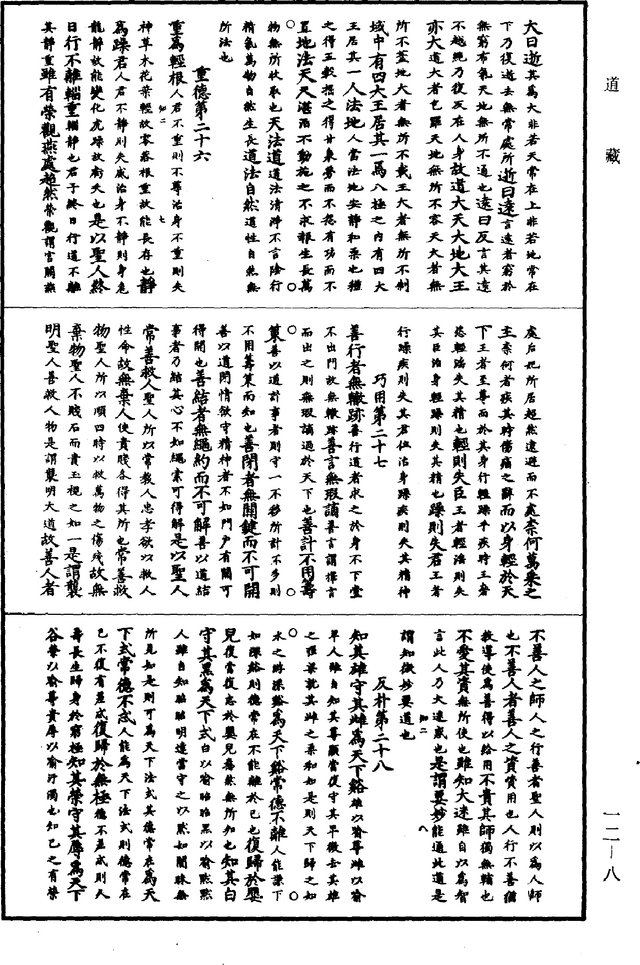 道藏
大曰逝其為大非若天常在上非若地常在
下乃復逝去無常處所逝曰遠言遠者窮於
無窮布氣天地無所不通也遠曰反言其遠
不越絕乃復反在人身故道大天大地大王
亦大道大者包羅天地無所不容天大者無
所不蓋地大者無所不載王大者無所不制
域中有四大王居其一焉八極之內有四大
王居其一人法地人當法地安靜和柔也種
之得五穀掘之得甘泉勞而不怨有功而不
置地法天天湛泊不動施之不求報生長萬
物無所收取也天法道道法清淨不言陰行
精氣萬物自然生長道法自然道性自然無
所法也
重德第二十六
重為輕根人君不重則不尊治身不重則失
知二 七
神草木花葉輕故零落根重故能長存也靜
為躁君人君不靜則失威治身不靜則身危
龍靜故能變化虎躁故夭也是以聖人終
日行不離輜重輜靜也君子終日行道不離
其靜雖有榮觀燕處超然榮觀謂宮闕燕
處后妃所居超然遠避而不處柰何萬乘之
主柰何者疾其時傷痛之辭而以身輕於天
下王者至尊而於其身行輕躁乎疾時王奢
恣輕淫失其精也輕則失臣王者輕淫則失
其臣治身輕躁則失其精也躁則失君王者
行躁疾則失其君位治身躁疾則失其精神
巧用第二十七
善行者無轍跡善行道者求之於身不下堂
不出門故無轍跡善言無瑕讁善言謂擇言
而出之則無瑕讁過於天下也善計不用籌
策善以道計事者則守一不移所計不多則
不用籌策而知也善閉者無關鍵而不可開
善以道閉情欲守精神者不如門戶有關可
得開也善結者無繩約而不可解善以道結
事者乃結其心不如繩索可得解是以聖人
常善救人聖人所以常教人忠孝欲以救人
性命故無棄人使貴賤各得其所也常善救
物聖人所以順四時以救萬物之傷殘故無
棄物聖人不賤石而貴玉視之如一是謂襲
明聖人善救人物是謂襲明大道故善人者
不善人之師人之行善者聖人則以為人師
也不善人者善人之資資用也人行不善猶
教導使為善得以給用不貴其師獨無輔也
不愛其資無所使也雖知大迷雖自以為智
言此人乃大迷惑也是謂要妙能通此道是
知二 八
謂知微妙要道也
反朴第二十八
知其雄守其雌為天下谿雄以喻尊雌以喻
卑人雖自知其尊顯當復守其卑微去其雄
之強梁就其雌之柔和如是則天下歸之如
水之時深谿為天下谿常德不離人能謙下
如深谿則德常在不能離於己也復歸於嬰
兒復當復志於嬰兒惷然無所知也知其白
守其黑為天下式白以喻昭昭黑以喻默默
人雖自知昭昭明達當守之以默如闇昧無
所見如是則可為天下法式其德常在為天
下式常德不忒人能為天下法式則德常在
己不復有差忒復歸於無極德不差忒則天
壽長生歸身於窮極知其榮守其辱為天下
谷榮以喻尊貴辱以喻汙濁也知己之有榮
一二—八